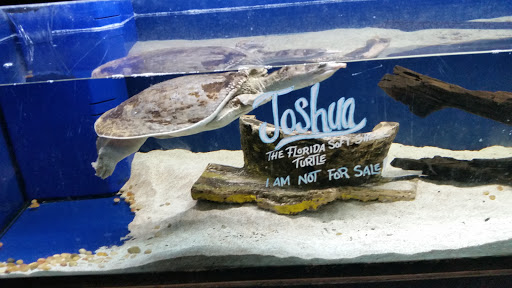 Joshua
THE FLORIDA SOFT
TURTLE
I AM NOT FOR SALE